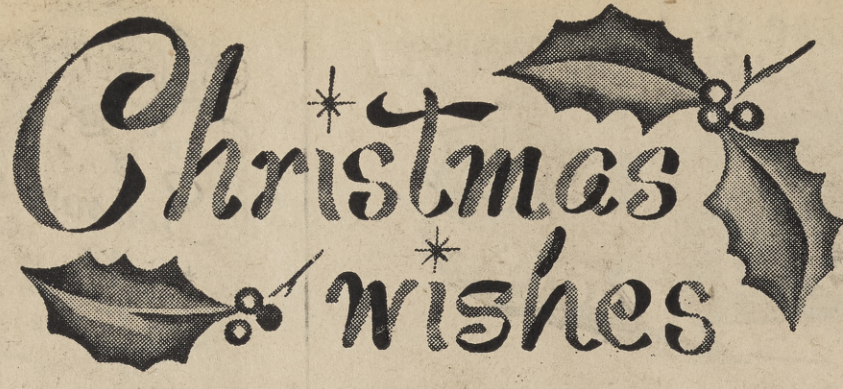 Christmas
wishes